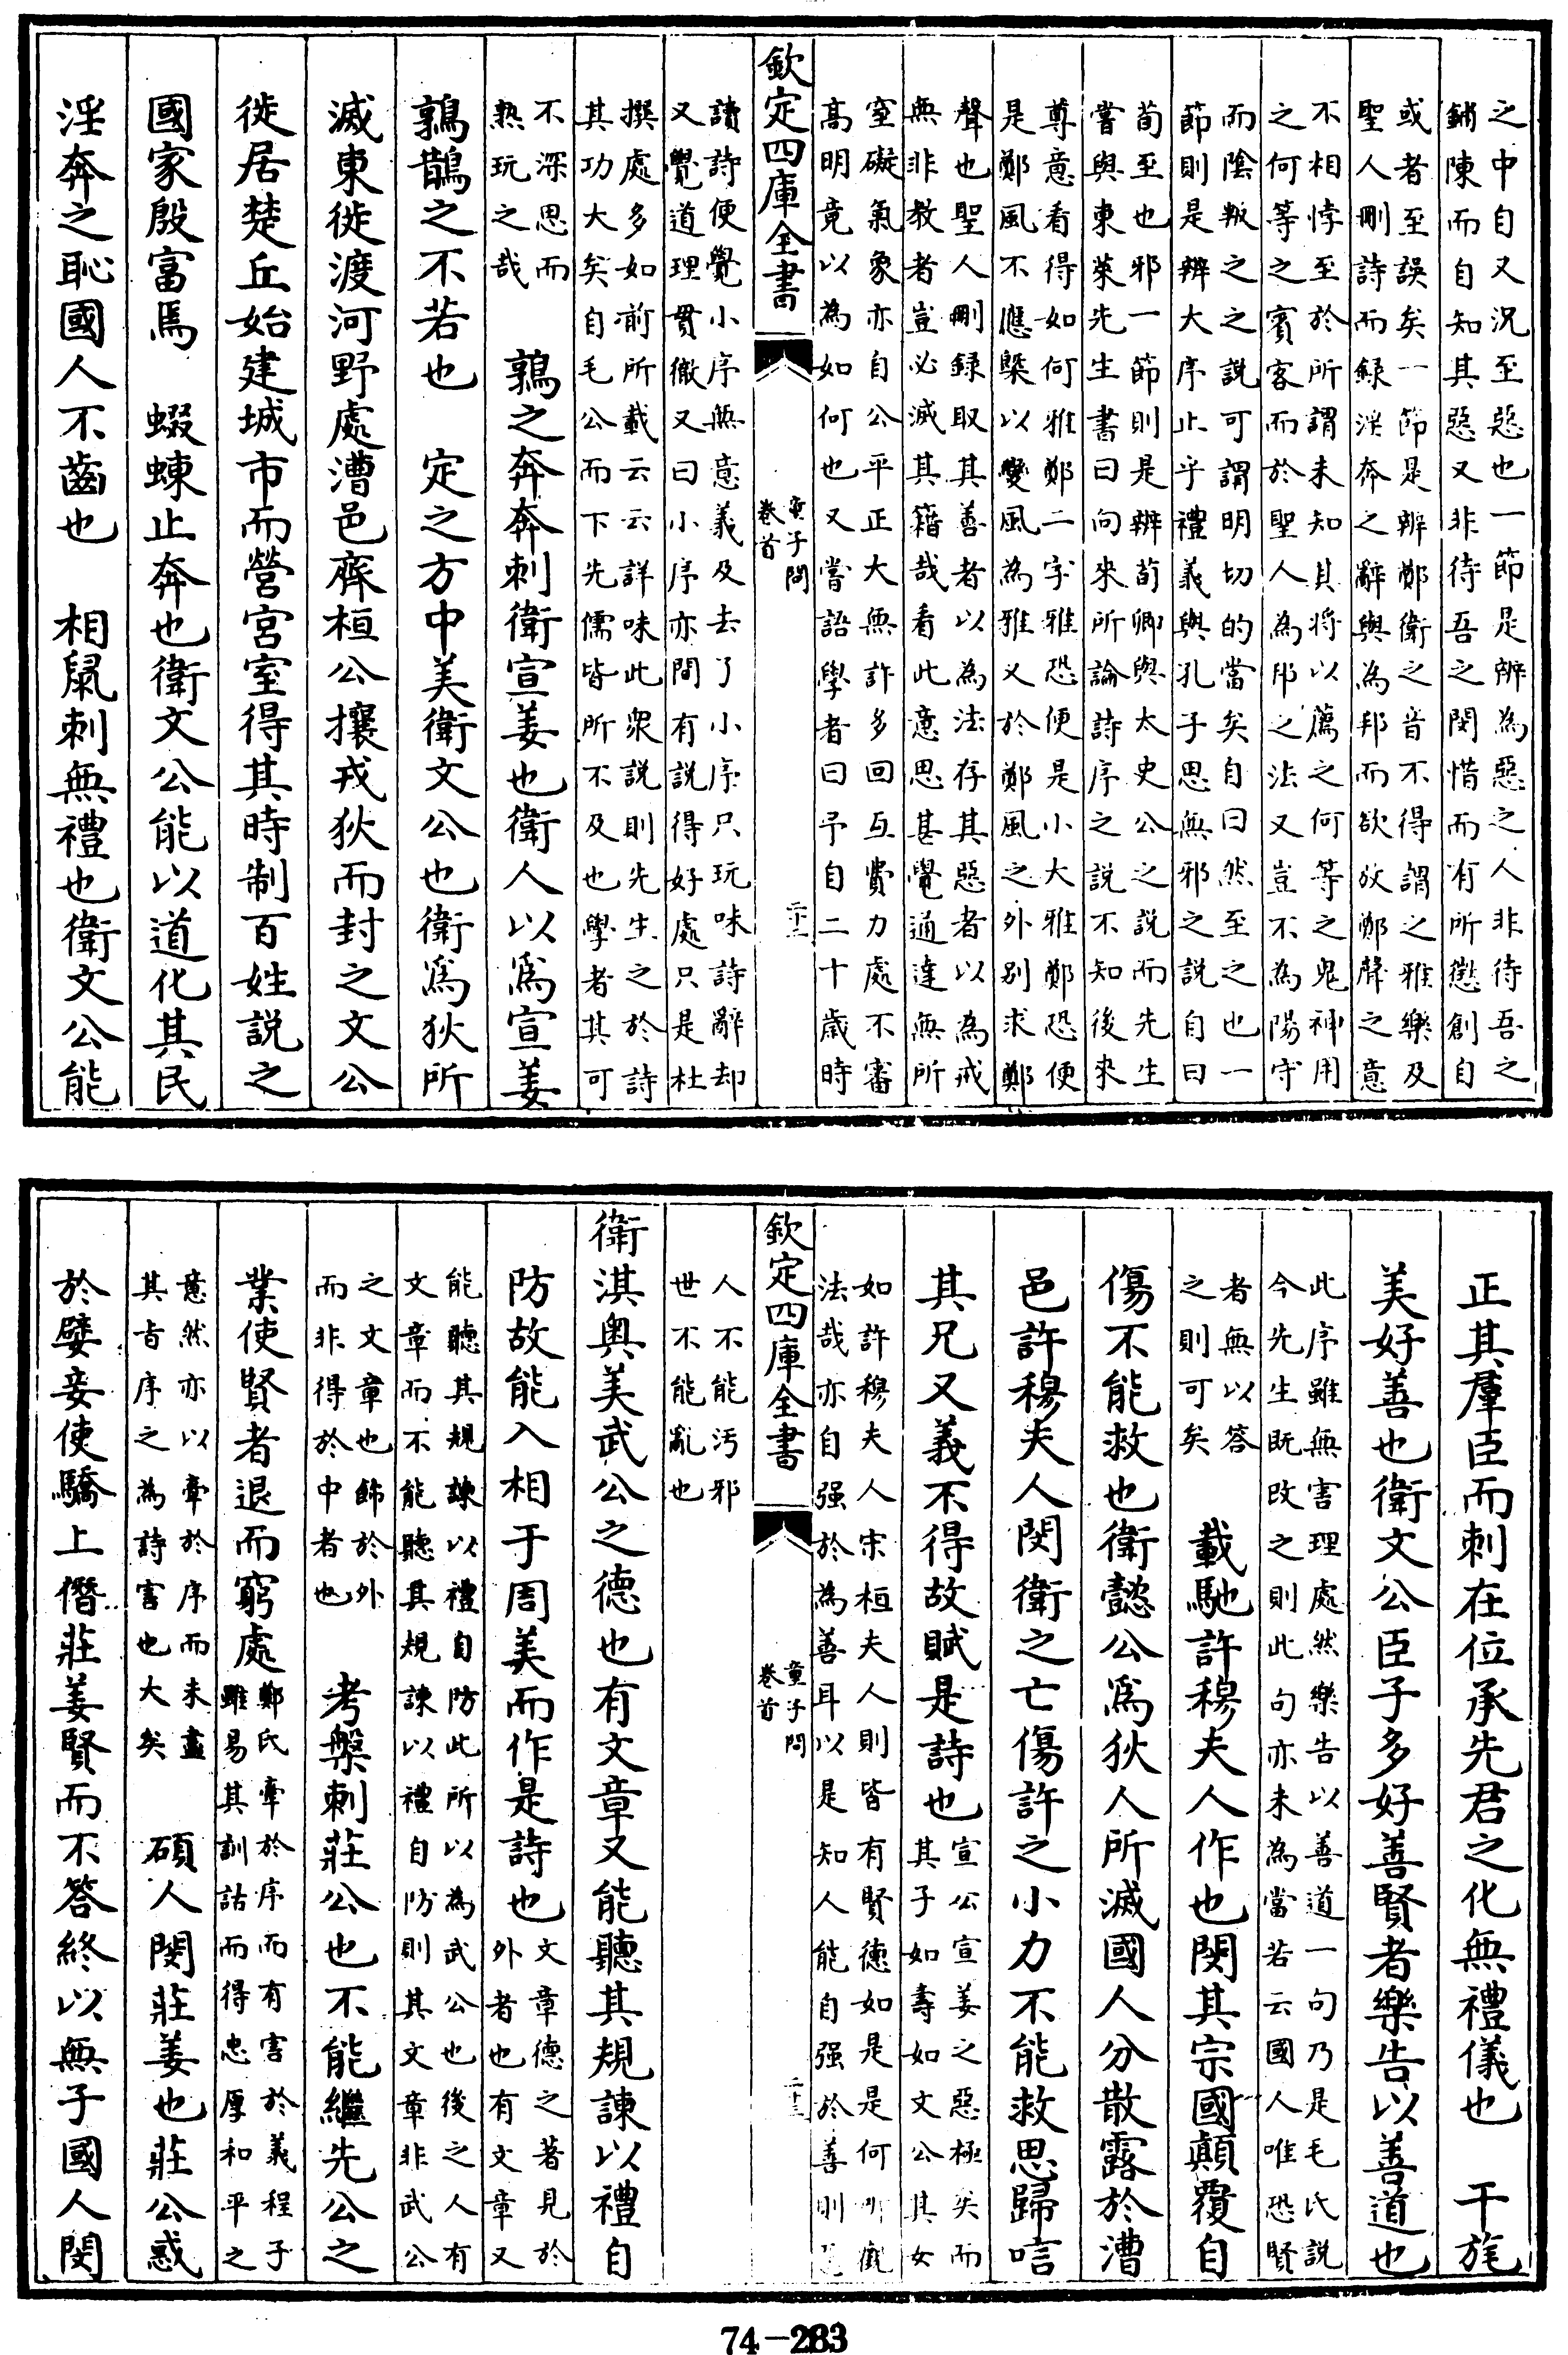 之中自又况至惡也一節是辨為惡之人非待吾之
鋪陳而自知其惡又非待吾之閔惜而有所懲創自
或者至誤矣一節是辨鄭衛之音不得謂之雅樂及
聖人刪詩而録淫奔之辭與為邦而欲放鄭聲之意
不相悖至於所謂未知其将以薦之何等之鬼神用
之何等之賓客而於聖人為邦之法又豈不為陽守
而陰叛之之說可謂明切的當矣自曰然至之也一
節則是辨大序止乎禮義與孔子思無邪之說自曰
荀至也邪一節則是辨荀卿與太史公之說而先生
嘗與東萊先生書曰向來所論詩序之說不知後來
尊意看得如何雅鄭二字雅恐便是小大雅鄭恐便
是鄭風不應槩以變風為雅又於鄭風之外别求鄭
聲也聖人刪録取其善者以為法存其惡者以為戒
無非教者豈必滅其籍哉看此意思甚覺通達無所
窒礙氣象亦自公平正大無許多回互費力處不審
高明竟以為如何也又嘗語學者曰予自二十歲時
欽定四庫全書
童子問
卷首
二十二
讀詩便覺小序無意義及去了小序只玩味詩辭却
又覺道理貫徹又曰小序亦間有説得好處只是杜
撰處多如前所載云云詳味此衆説則先生之於詩
其功大矣自毛公而下先儒皆所不及也學者其可
不深思而
熟玩之哉
鶉之奔奔刺衛宣姜也衛人以為宣姜
鶉鵲之不若也　定之方中美衛文公也衛為狄所
滅東徙渡河野處漕邑齊桓公攘戎狄而封之文公
徙居楚丘始建城市而營宮室得其時制百姓説之
國家殷富焉　蝃蝀止奔也衛文公能以道化其民
淫奔之恥國人不齒也　相鼠刺無禮也衛文公能
正其羣臣而刺在位承先君之化無禮儀也　干旄
美好善也衛文公臣子多好善賢者樂告以善道也
此序雖無害理處然樂告以善道一句乃是毛氏説
今先生既改之則此句亦未為當若云國人唯恐賢
者無以答
之則可矣
載馳許穆夫人作也閔其宗國顛覆自
傷不能救也衛懿公為狄人所滅國人分散露於漕
邑許穆夫人閔衛之亡傷許之小力不能救思歸唁
其兄又義不得故賦是詩也
宣公宣姜之惡極矣而
其子如壽如文公其女
如許穆夫人宋桓夫人則皆有賢德如是是何
法哉亦自强於為善耳以是知人能自强於善則
欽定四庫全書
童子問
卷首
二十三
人不能汚邪
世不能亂也
衛淇奥美武公之德也有文章又能聽其規諫以禮自
防故能入相于周美而作是詩也
文章德之著見於
外者也有文章又
能聽其規諫以禮自防此所以為武公也後之人有
文章而不能聽其規諫以禮自防則其文章非武公
之文章也飾於外
而非得於中者也
考槃刺莊公也不能繼先公之
業使賢者退而窮處
鄭氏牽於序而有害於義程子
雖易其訓詁而得忠厚和平之
意然亦以牽於序而未盡
其旨序之為詩害也大矣
碩人閔莊姜也莊公惑
於嬖妾使驕上僭莊姜賢而不答終以無子國人閔
74-283